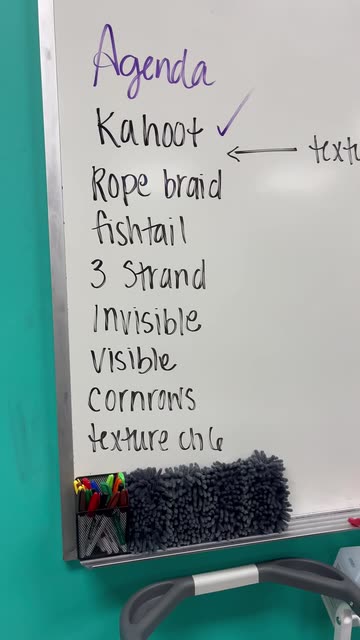 Agenda
Kahoot
Rope braid
fishtail
3 Strand
Invisible
visible
cornrows
texture ch 6